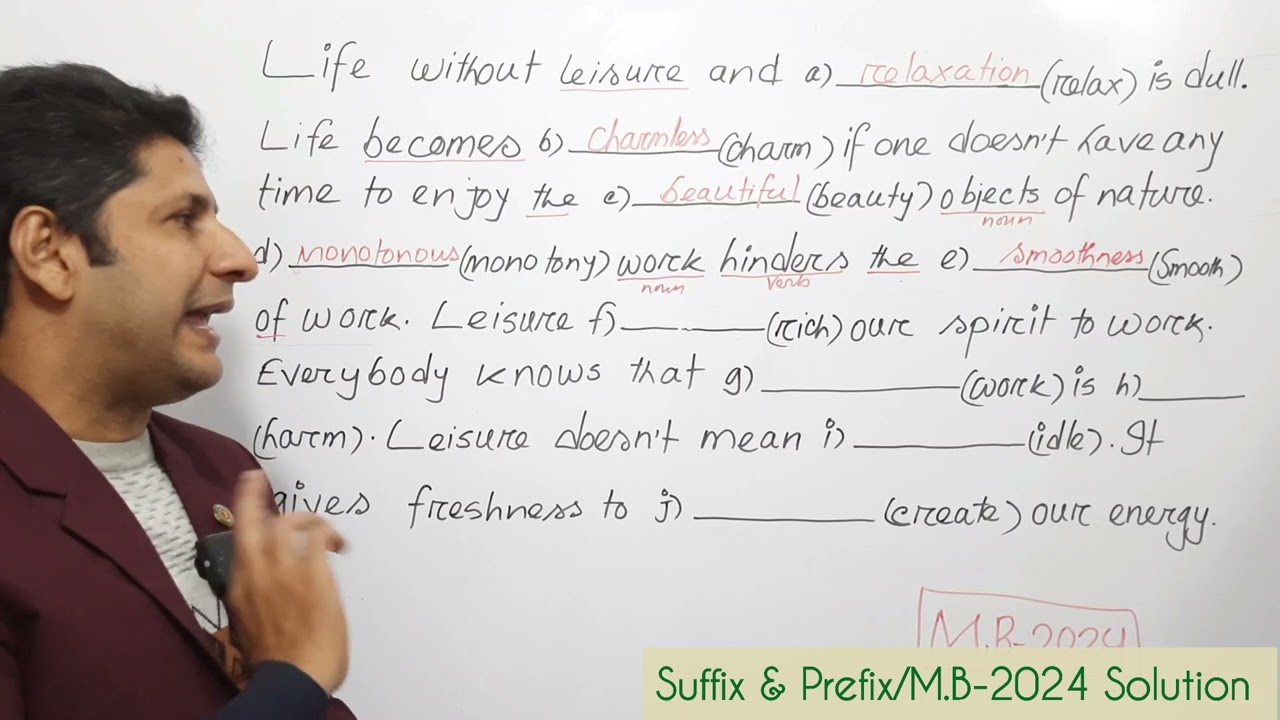 Life without leisure and a) relaxation (relax) is dull.
Life becomes b) charmless (charm) if one doesn't have any
time to enjoy the c) beautiful (beauty) objects of nature.
noun
d) monotonous (monotony) work hinders the e) smoothness (smooth)
noun verb
of work. Leisure f) ______ (rich) our spirit to work.
Everybody knows that g) ______ (work) is h) ______
(harm). Leisure doesn't mean i) ______ (idle). It
gives freshness to j) ______ (create) our energy.
M.B-2024
Suffix & Prefix/M.B-2024 Solution